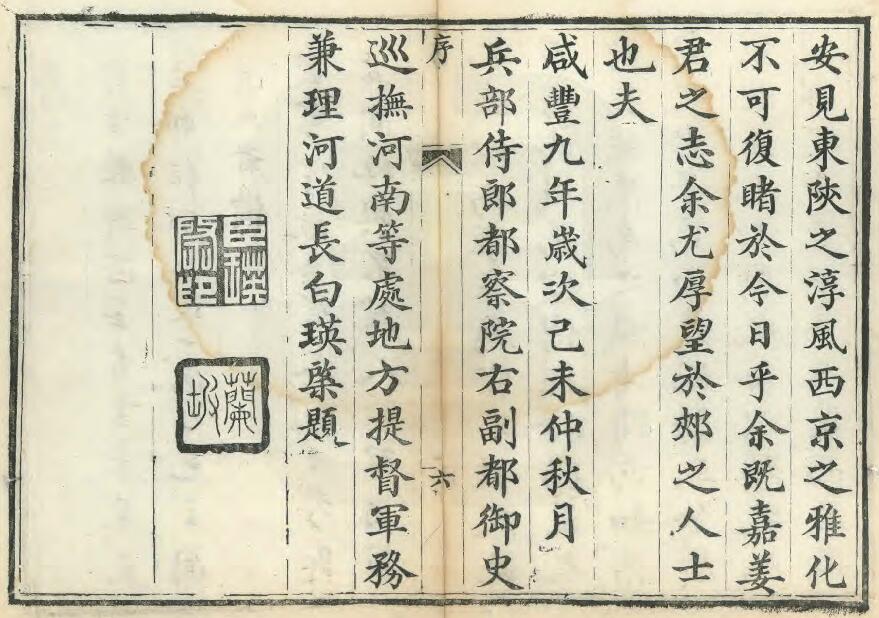 安見東陝之淳風西京之雅化
不可復睹於今日乎余既嘉姜
君之志余尤厚望於郟之人士
也夫
咸豐九年歲次己未仲秋月
兵部侍郎都察院右副都御史
序
六
巡撫河南等處地方提督軍務
兼理河道長白瑛棨題
臣瑛
棨印
蘭坡